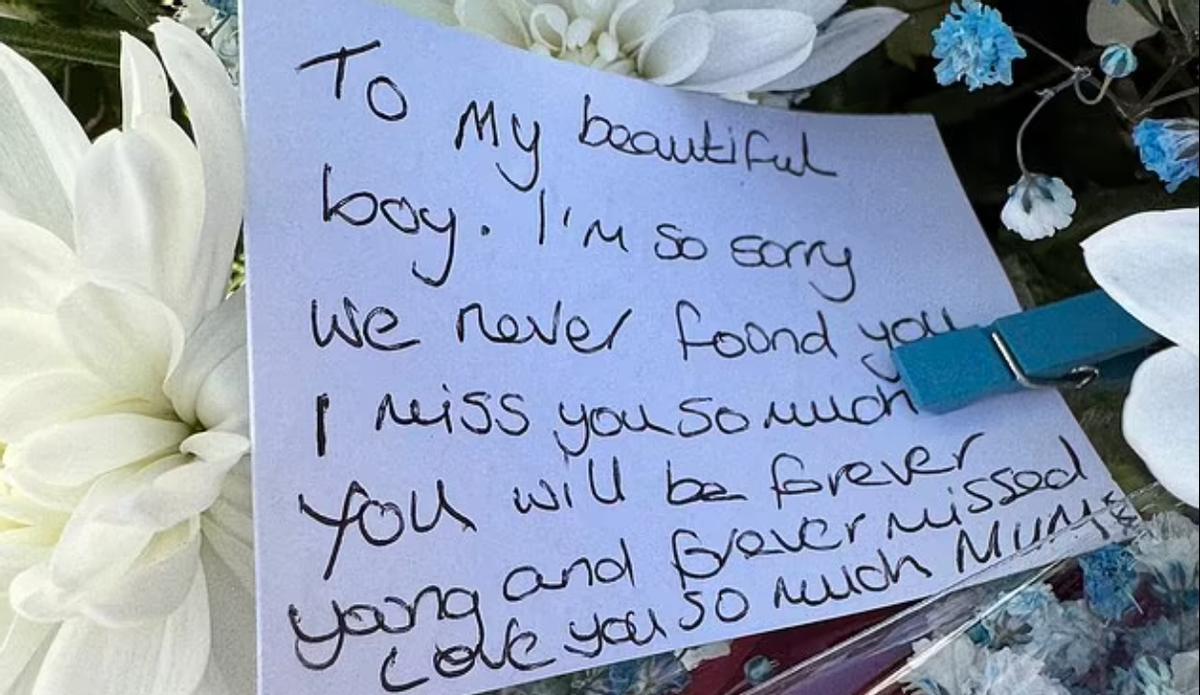 To My beautiful
boy. I'm so sorry
We never foond you
I miss you so much
You will be forever
young and forever missed
Love you so much Mum